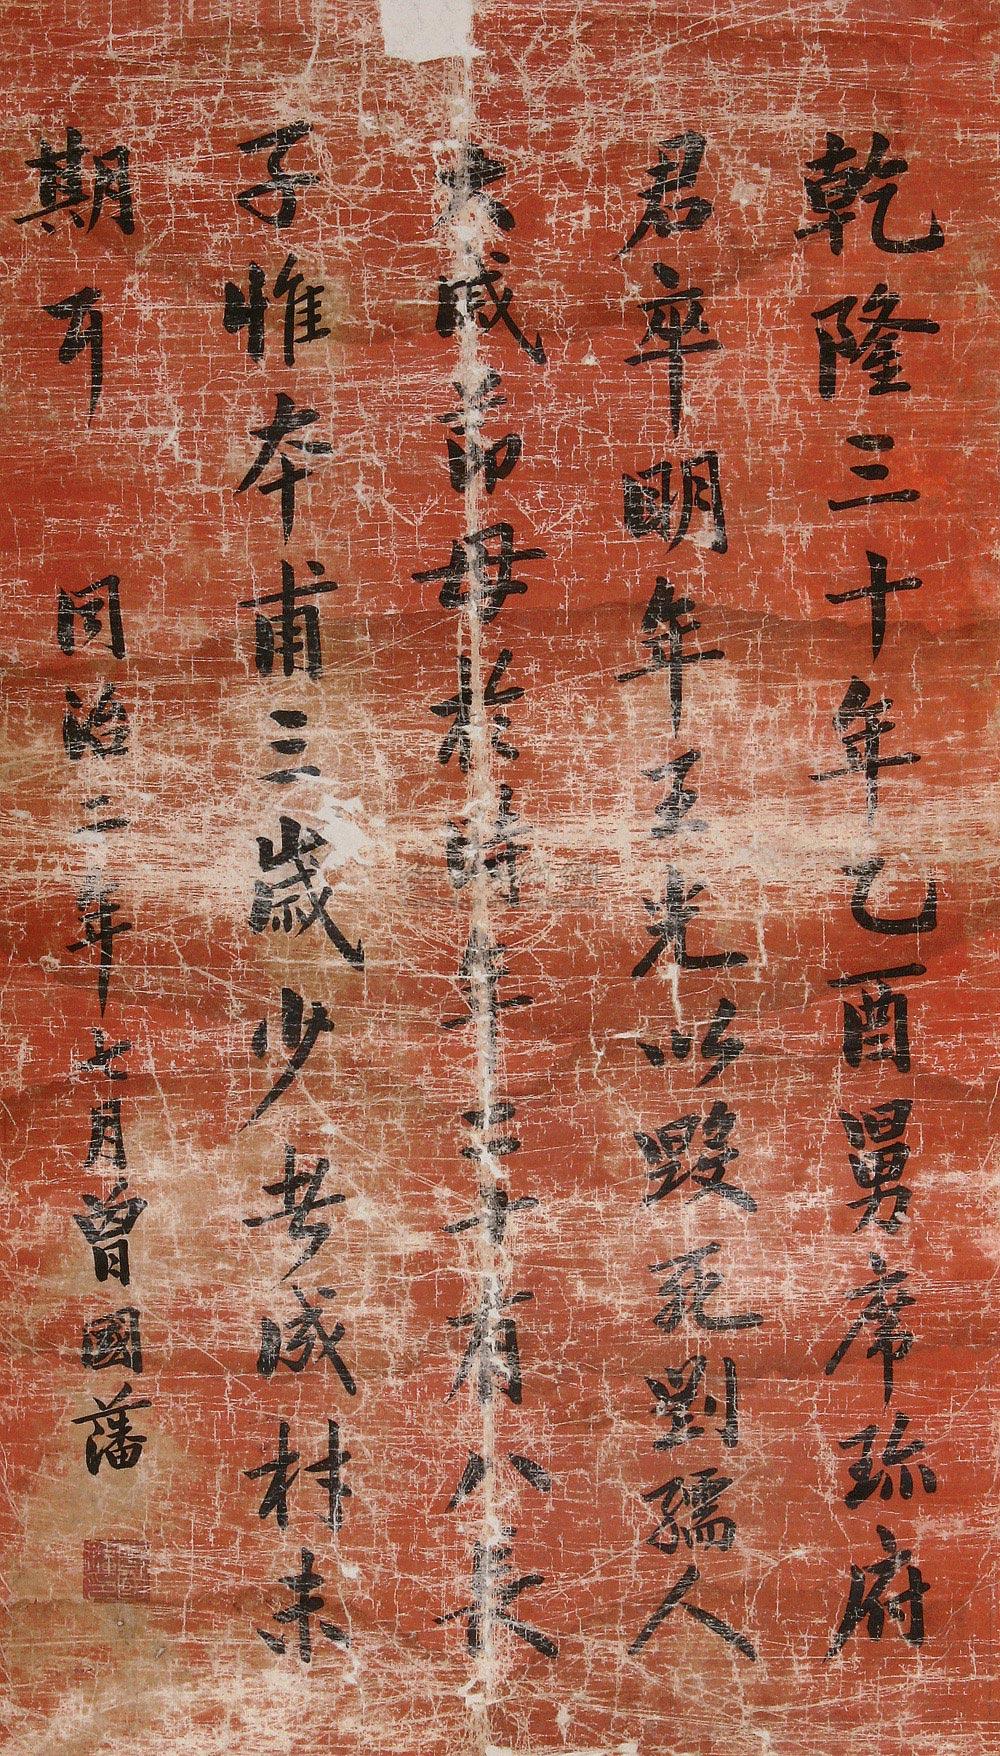 乾隆三十年乙酉舅席珍府
君卒明年王光以毀死劉孺人
大戚節母於時年三十有八長
子惟本甫三歲少者成材未
期耳
同治二年七月曾國藩